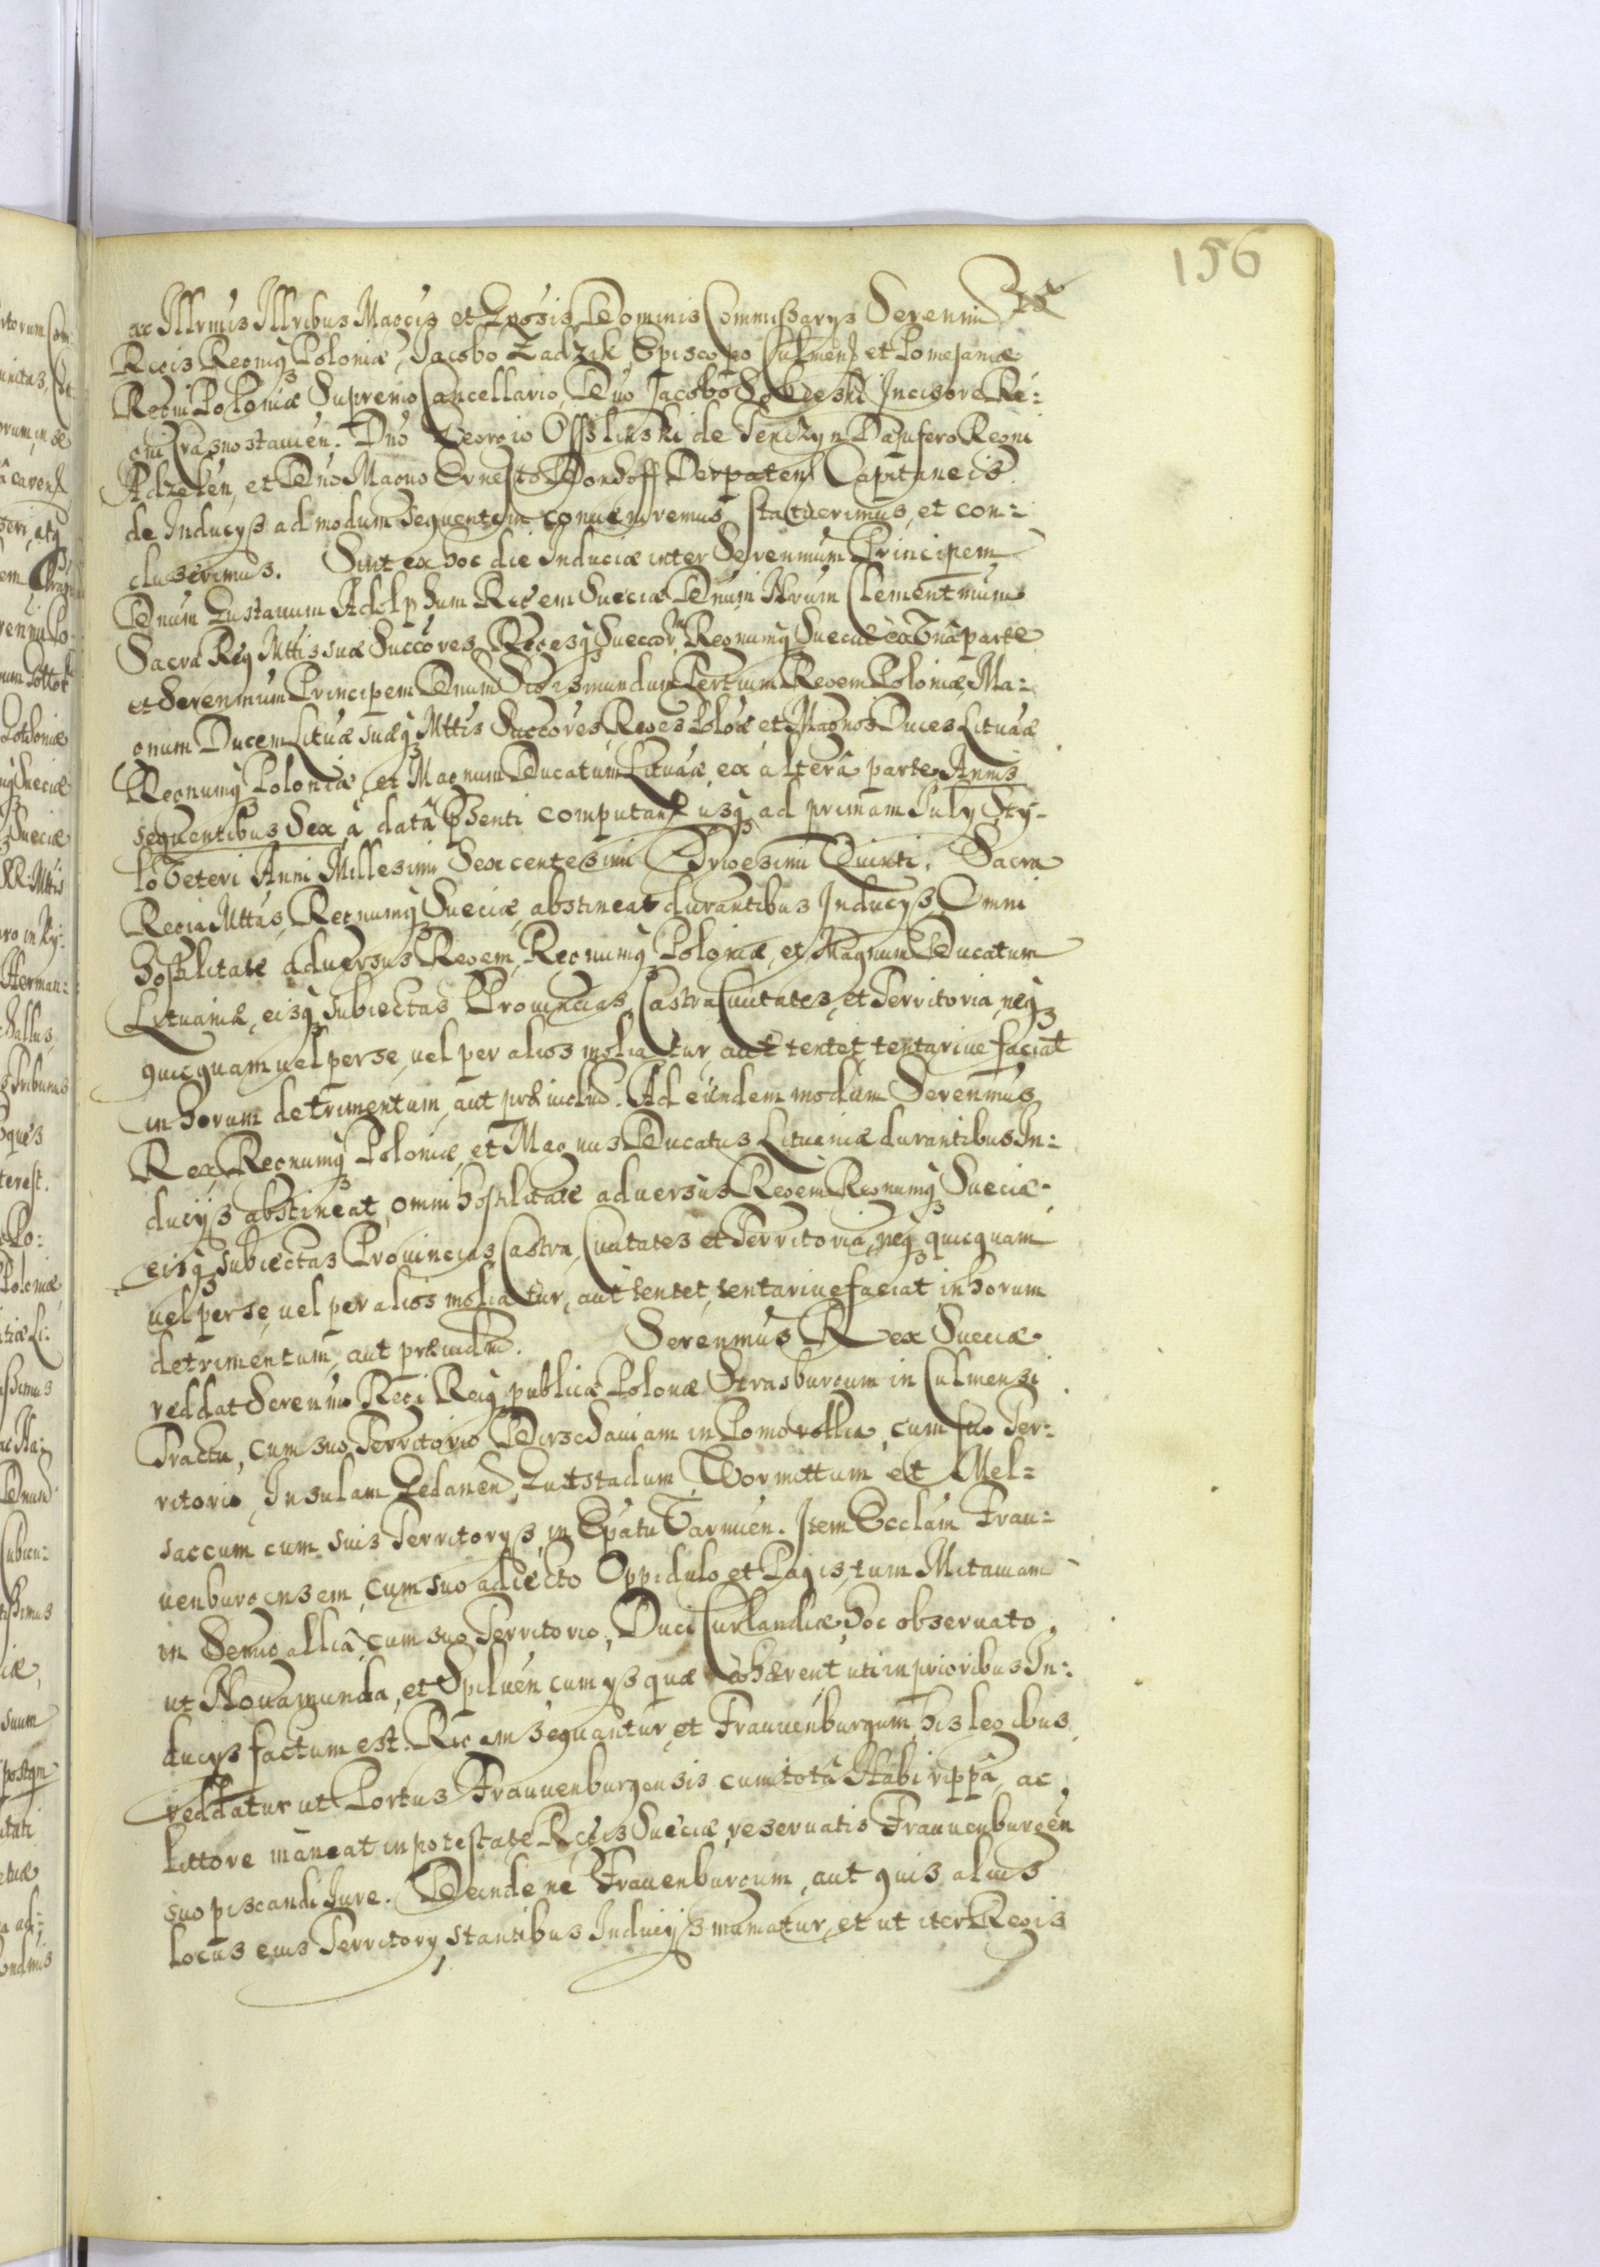 156
ac Illrmis Illribus Magcis et Grosis Dominis Commissarys Serenmi
Regis Regniq Poloniæ, Jacobo Zadzik Episcopo Culmens et Pomesaniæ
Regni Poloniæ Supremo Cancellario, Dno Jacobo Sobieski Incisore Re-
gni Crasnostauien. Dno Georgio Ossolinski de Tenczyn Dapifero Regni
Adzelen, et Dno Magno Ernesto Donhoff Derpatens Capitaneis
de Inducys ad modum sequentem conuenremus statuerimus, et con-
cluserimus. Sint ex hoc die Induciæ inter Serenmum Principem
Dnum Gustauum Adolphum Regem Sueciæ Dnum Nrum Clementmum
Sacræ Reg Mttis suæ Succores Regesq Suecor Regnumq Sueciæ ex Una parte
et Serenmum Principem Dnum Sigismundum Tertium Regem Poloniæ, Ma-
gnum Ducem Lituæ suæq Mttis Succores Reges Polonæ et Magnos Duces Lituaæ
Regnumq Poloniæ, et Magnum Ducatum Lituaæ ex altera parte, Annis
sequentibus Sex â data psenti computans usq ad primam July Sty-
lo Veteri Anni Millesimi Sexcentesimi Trigesimi Quinti. Sacra
Regia Mttas, Regnumq Sueciæ abstineat durantibus Inducys Omni
hostilitate aduersus Regem, Regnumq Poloniæ, et Magnum Ducatum
Lituaniæ, eisq subiectas Prouincias Castra Ciuitates, et Territoria, neq
quicquam uel per se, uel per alios moliatur aut tentet, tentariue faciat
in horum detrimentum, aut præiudm. Ad eundem modum Serenmus
Rex Regnumq Poloniæ, et Magnus Ducatus Lituaniæ durantibus In-
ducys abstineat omni hostilitate aduersus Regem Regnumq Sueciæ
eisq subiectas Prouincias Castra, Ciuitates et Territoria, neq quicquam
uel per se, uel per alios moliatur, aut tentet, tentariue faciat, in horum
detrimentum, aut præiudm. Serenmus Rex Sueciæ
reddat Serenmo Regi Reiq publicæ Polonæ Strasburgum in Culmensi
Tractu, cum suo Territorio Dirschauiam in Pomerellia, cum suo Ter-
ritorio, Insulam Gedanen, Gutstadum, Wormittum et Mel-
saccum cum suis Territorys, in Epatu Varmien. Item Ecclam Frau-
uenburgensem, cum suo adiecto Oppidulo et Pagis, tum Mitauiam
in Semigallia, cum suo Territorio, Duci Curlandiæ, hoc obseruato
ut Nouamunda, et Spiluen, cum ys quæ cohærent, uti in prioribus In-
ducys factum est. Rigam sequantur, et Frauuenburgum, his legibus
reddatur ut Portus Frauuenburgensis cum tota Habi rippa, ac
littore maneat in potestate Regis Sueciæ, reseruatis Frauuenburgen
suo piscandi Iure. Deinde ne Frauenburgum, aut quis alius
locus eius Territory, stantibus Inducys muniatur, et ut iter Regis